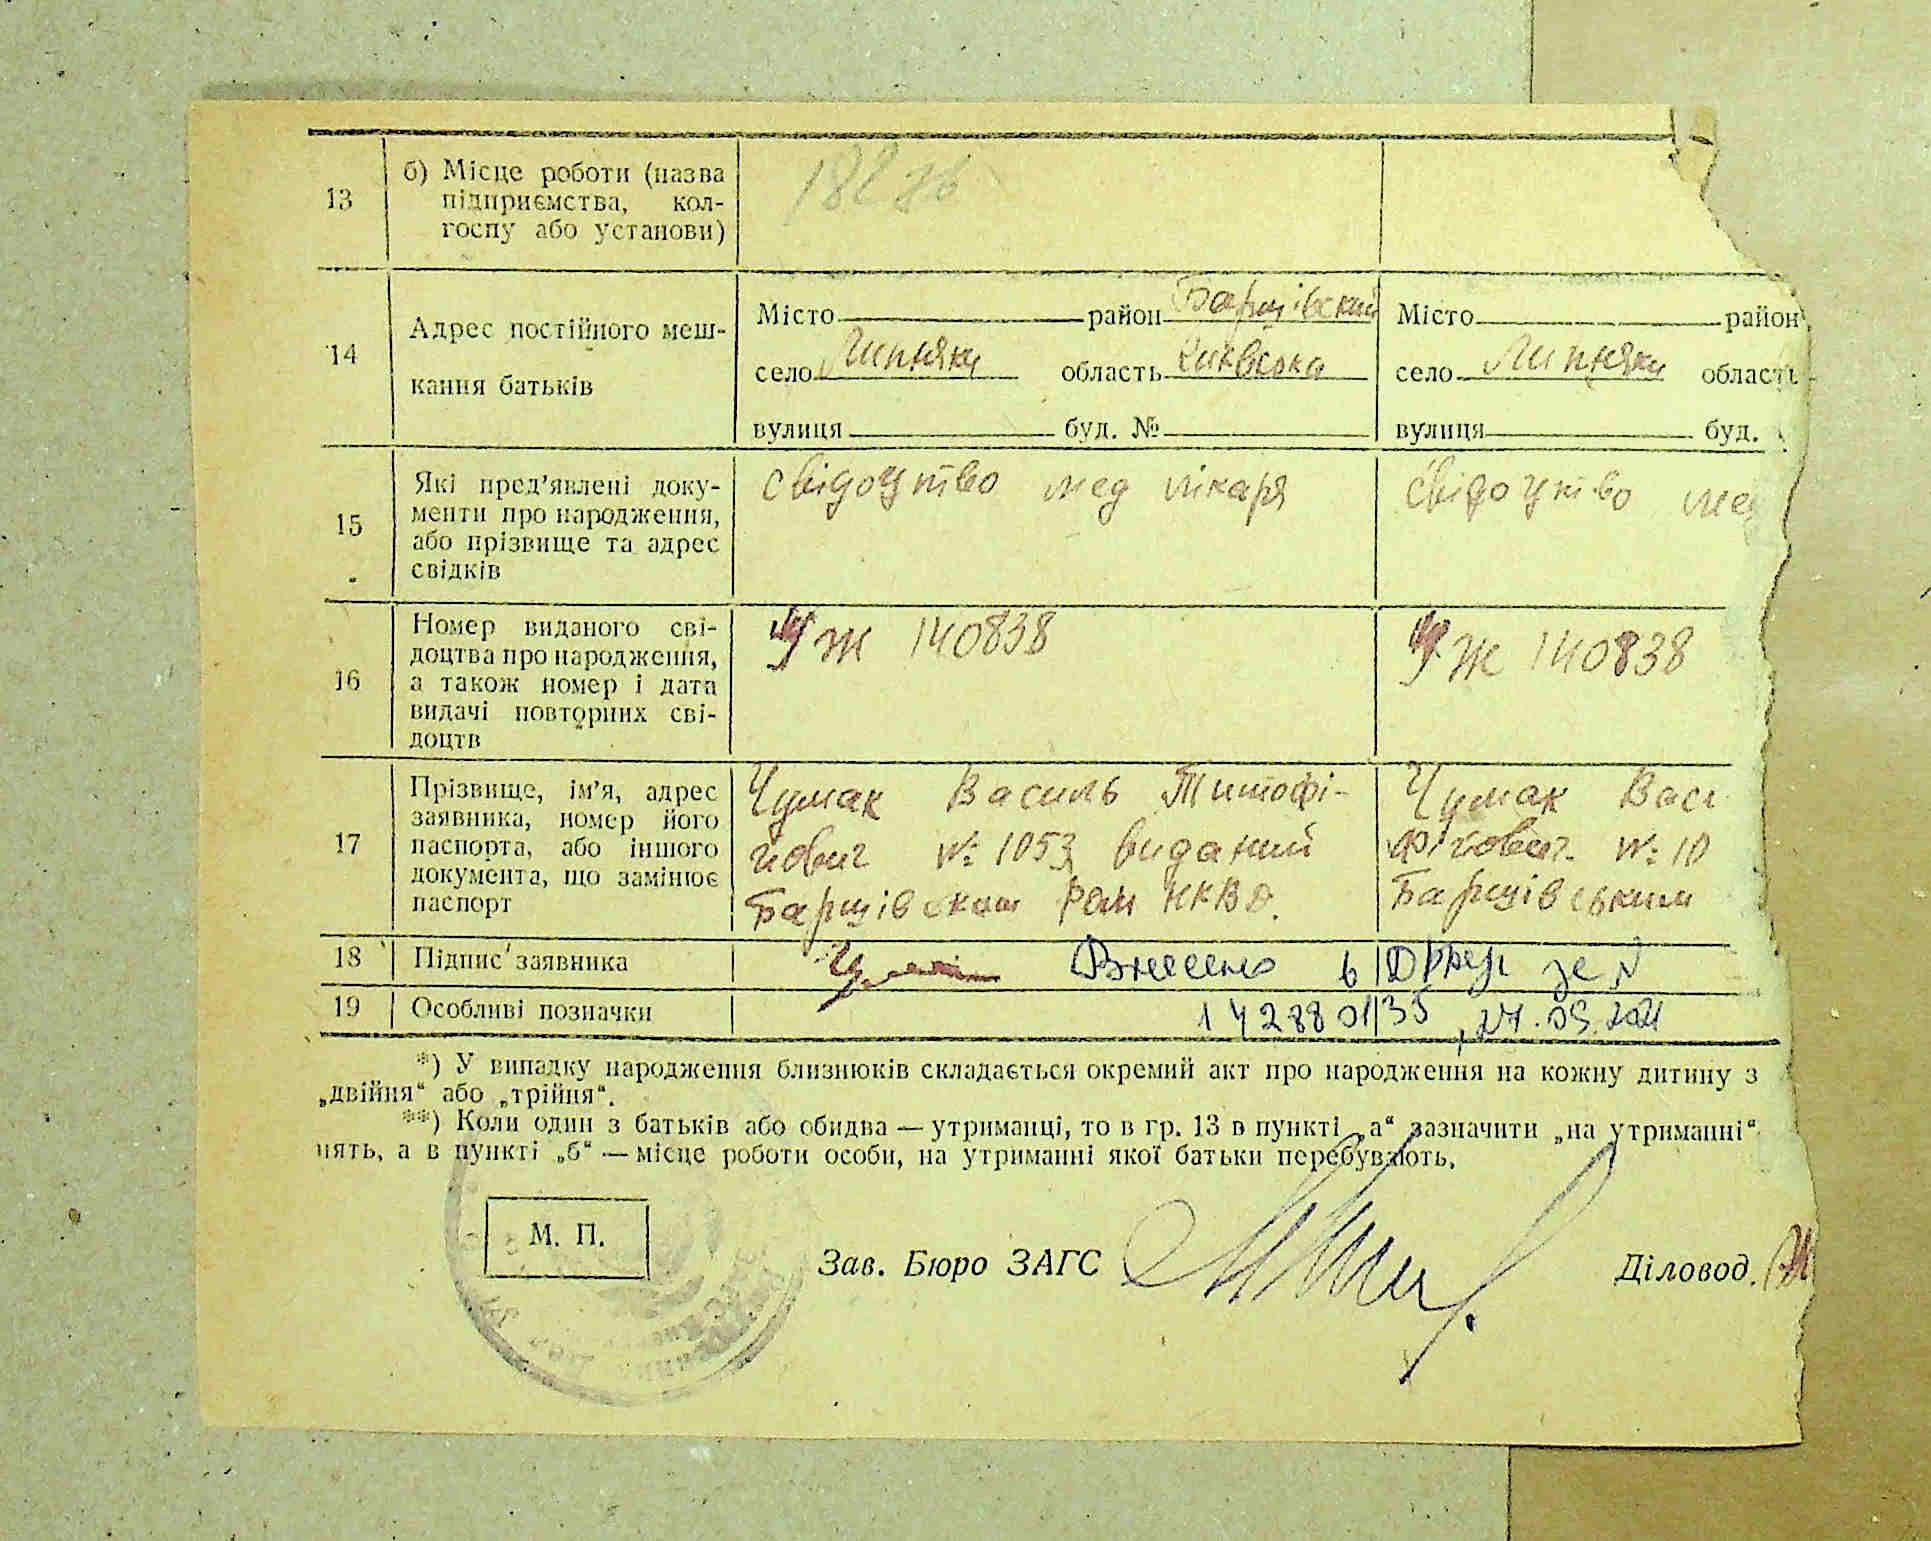 13
б) Місце роботи (назва
підприємства, кол-
госпу або установи)
14
Адрес постійного меш-
кання батьків
Місто район Барщівский
село Липняки область Київска
вулиця буд. №
Місто район
село Липняки область
вулиця буд.
15
Які пред'явлені доку-
менти про народження,
або прізвище та адрес
свідків
свідоцтво мед лікаря
свідоцтво мед
16
Номер виданого сві-
доцтва про народження,
а також номер і дата
видачі повторних сві-
доцтв
УЖ 140838
УЖ 140838
17
Прізвище, ім'я, адрес
заявника, номер його
паспорта, або іншого
документа, що замінює
паспорт
Чумак Василь Титофі-
йович № 1053 виданий
Барщівским Рай НКВД.
Чумак Васи
фійович № 10
Барщівським
18 Підпис заявника
Внесено в ДРАЦС за №
19 Особливі позначки
14288 01/35, 27.09.2021
*) У випадку народження близнюків складається окремий акт про народження на кожну дитину з
„двійня“ або „трійня“.
**) Коли один з батьків або обидва — утриманці, то в гр. 13 в пункті „а“ зазначити „на утриманні“
нять, а в пункті „б“ — місце роботи особи, на утриманні якої батьки перебувають.
М. П.
Зав. Бюро ЗАГС
Діловод.